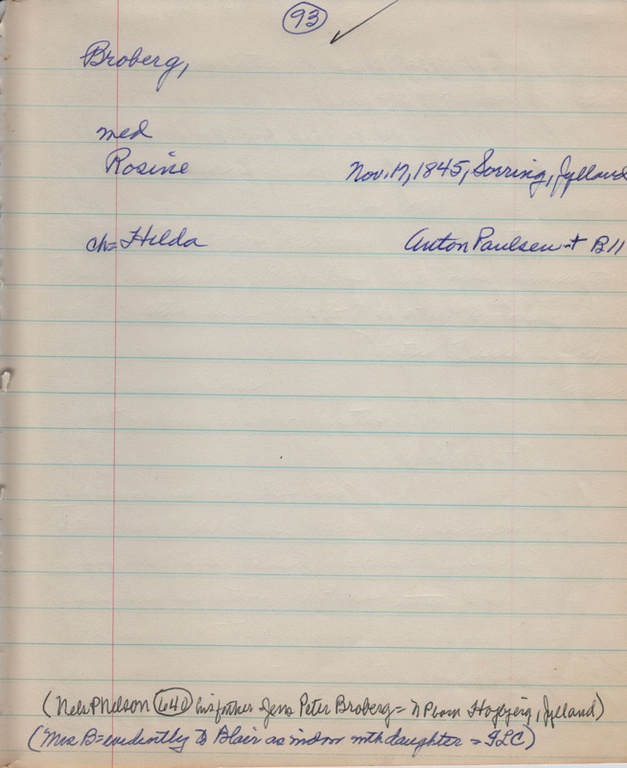 93
Broberg,
med
Rosine Nov. 17, 1845, Sorring, Jylland
ch= Hilda Anton Paulsen + B11
(Nels P Nelson 640 his father Jens Peter Broberg = N P born Jylland)
(Mrs B= evidently to Blair as widow with daughter = ILC)